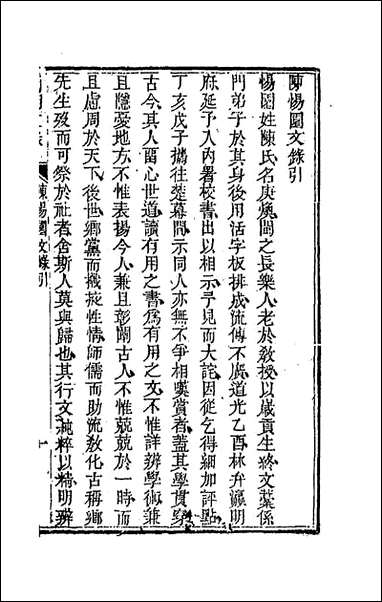 陳惕園文錄引
惕園姓陳氏名庚煥閩之長樂人老於敎授以歲貢生終文藁係
門弟子於其身後用活字板排成流傳不廣道光乙酉林弁瀛明
府延予入內署校書出以相示予見而大詫因從乞得細加評點
丁亥戊子攜往楚幕間示同人亦無不爭相嘆賞者蓋其學貫穿
古今其人留心世道讀有用之書爲有用之文不惟詳辨學術兼
且隱憂地方不惟表揚今人兼且彰闡古人不惟兢兢於一時而
且慮周於天下後世鄉黨而攡菝性情師儒而助流敎化古稱鄉
先生歿而可祭於社者舍斯人莫與歸也其行文純粹以精明辨
陳惕園文錄引
一